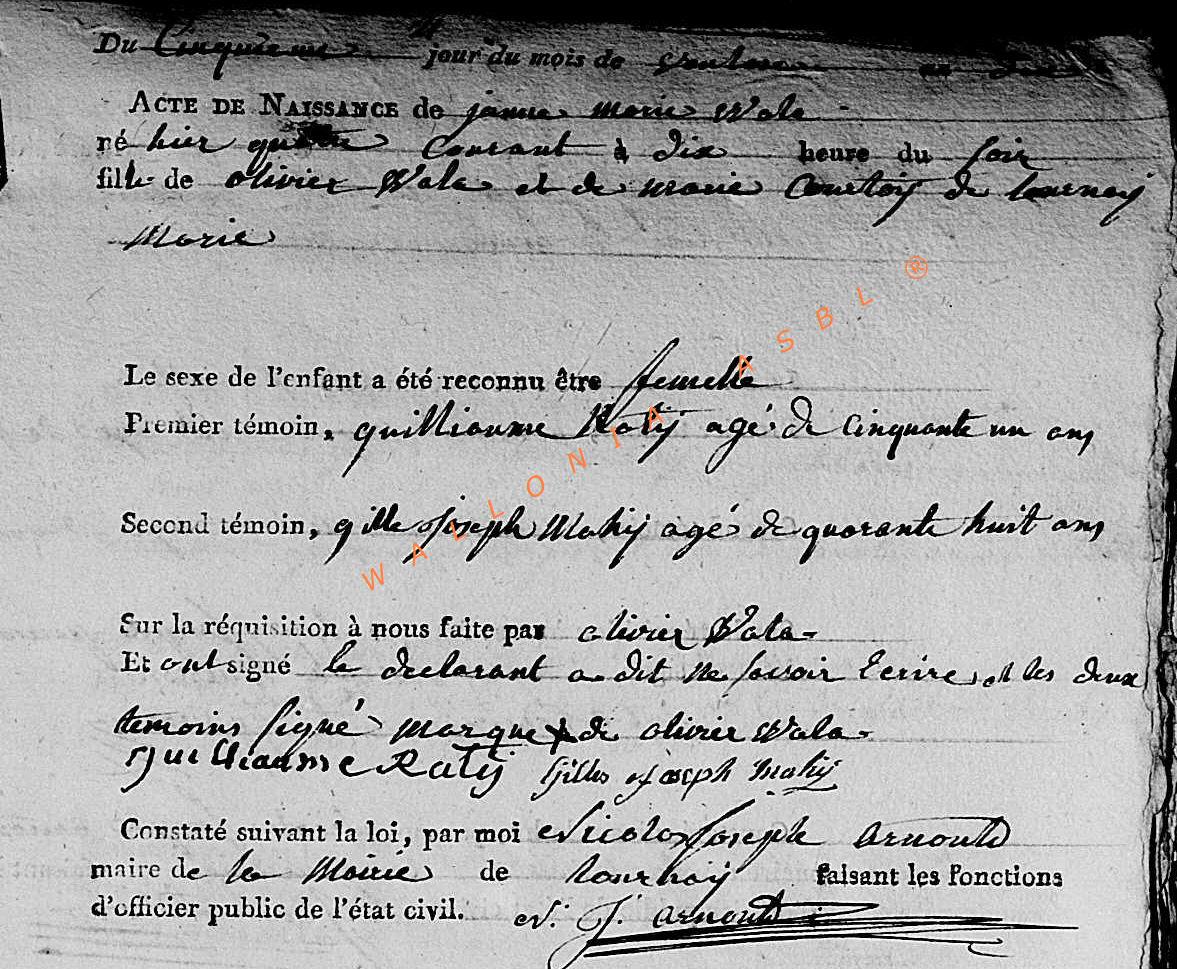 Du Cinquieme jour du mois de Ventose an dix
ACTE DE NAISSANCE de janne marie Wala
né hier quatre Courant à dix heure du soir
fille de olivier Wala et de marie Courtoij de tournaij
Marie
Le sexe de l'enfant a été reconnu être femelle
Premier témoin, guilliaume Ratij agé de Cinquante un ans
Second témoin, gille joseph Mahij agé de quarante huit ans
Sur la réquisition à nous faite par olivier Wala
Et ont signé le declarant a dit ne savoir Ecrire, et les deux
temoins signé marque de olivier Wala
guilliaume Ratij Gilles joseph mahij
Constaté suivant la loi, par moi Nicolas joseph arnould
maire de la Mairie de tournaij faisant les fonctions
d'officier public de l'état civil. N. J. arnould
WALLONIA ASBL ®